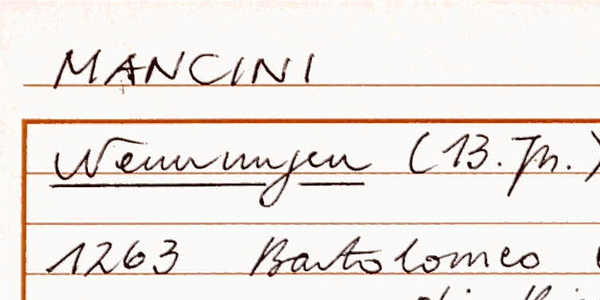 MANCINI
Nennungen (13. Jh.)
1263 Bartolomeo